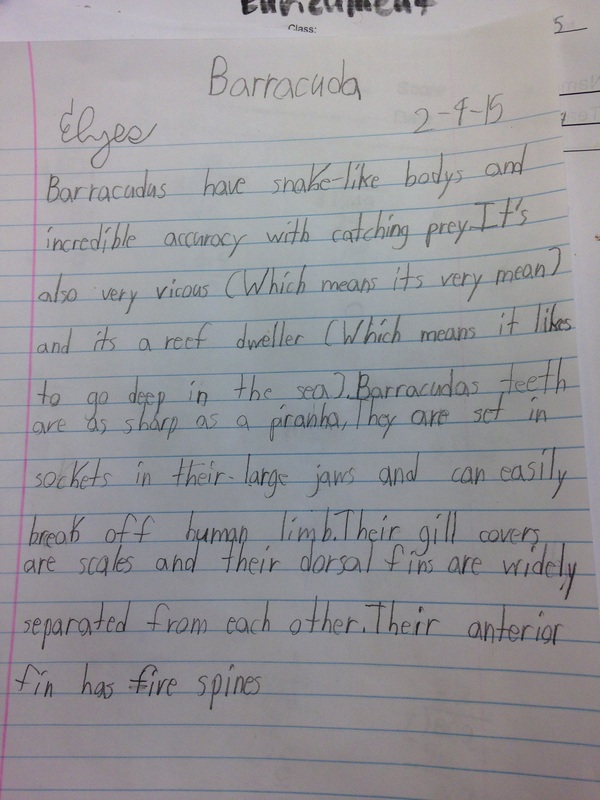 Enrichment
Class:
5
Barracuda
Elyes
2-4-15
Barracudas have snake-like bodys and
incredible accuracy with catching prey. It's
also very vicous (Which means its very mean)
and its a reef dweller (Which means it likes
to go deep in the sea). Barracudas teeth
are as sharp as a piranha, They are set in
sockets in their large jaws and can easily
break off human limb. Their gill covers
are scales and their dorsal fins are widely
separated from each other. Their anterior
fin has five spines